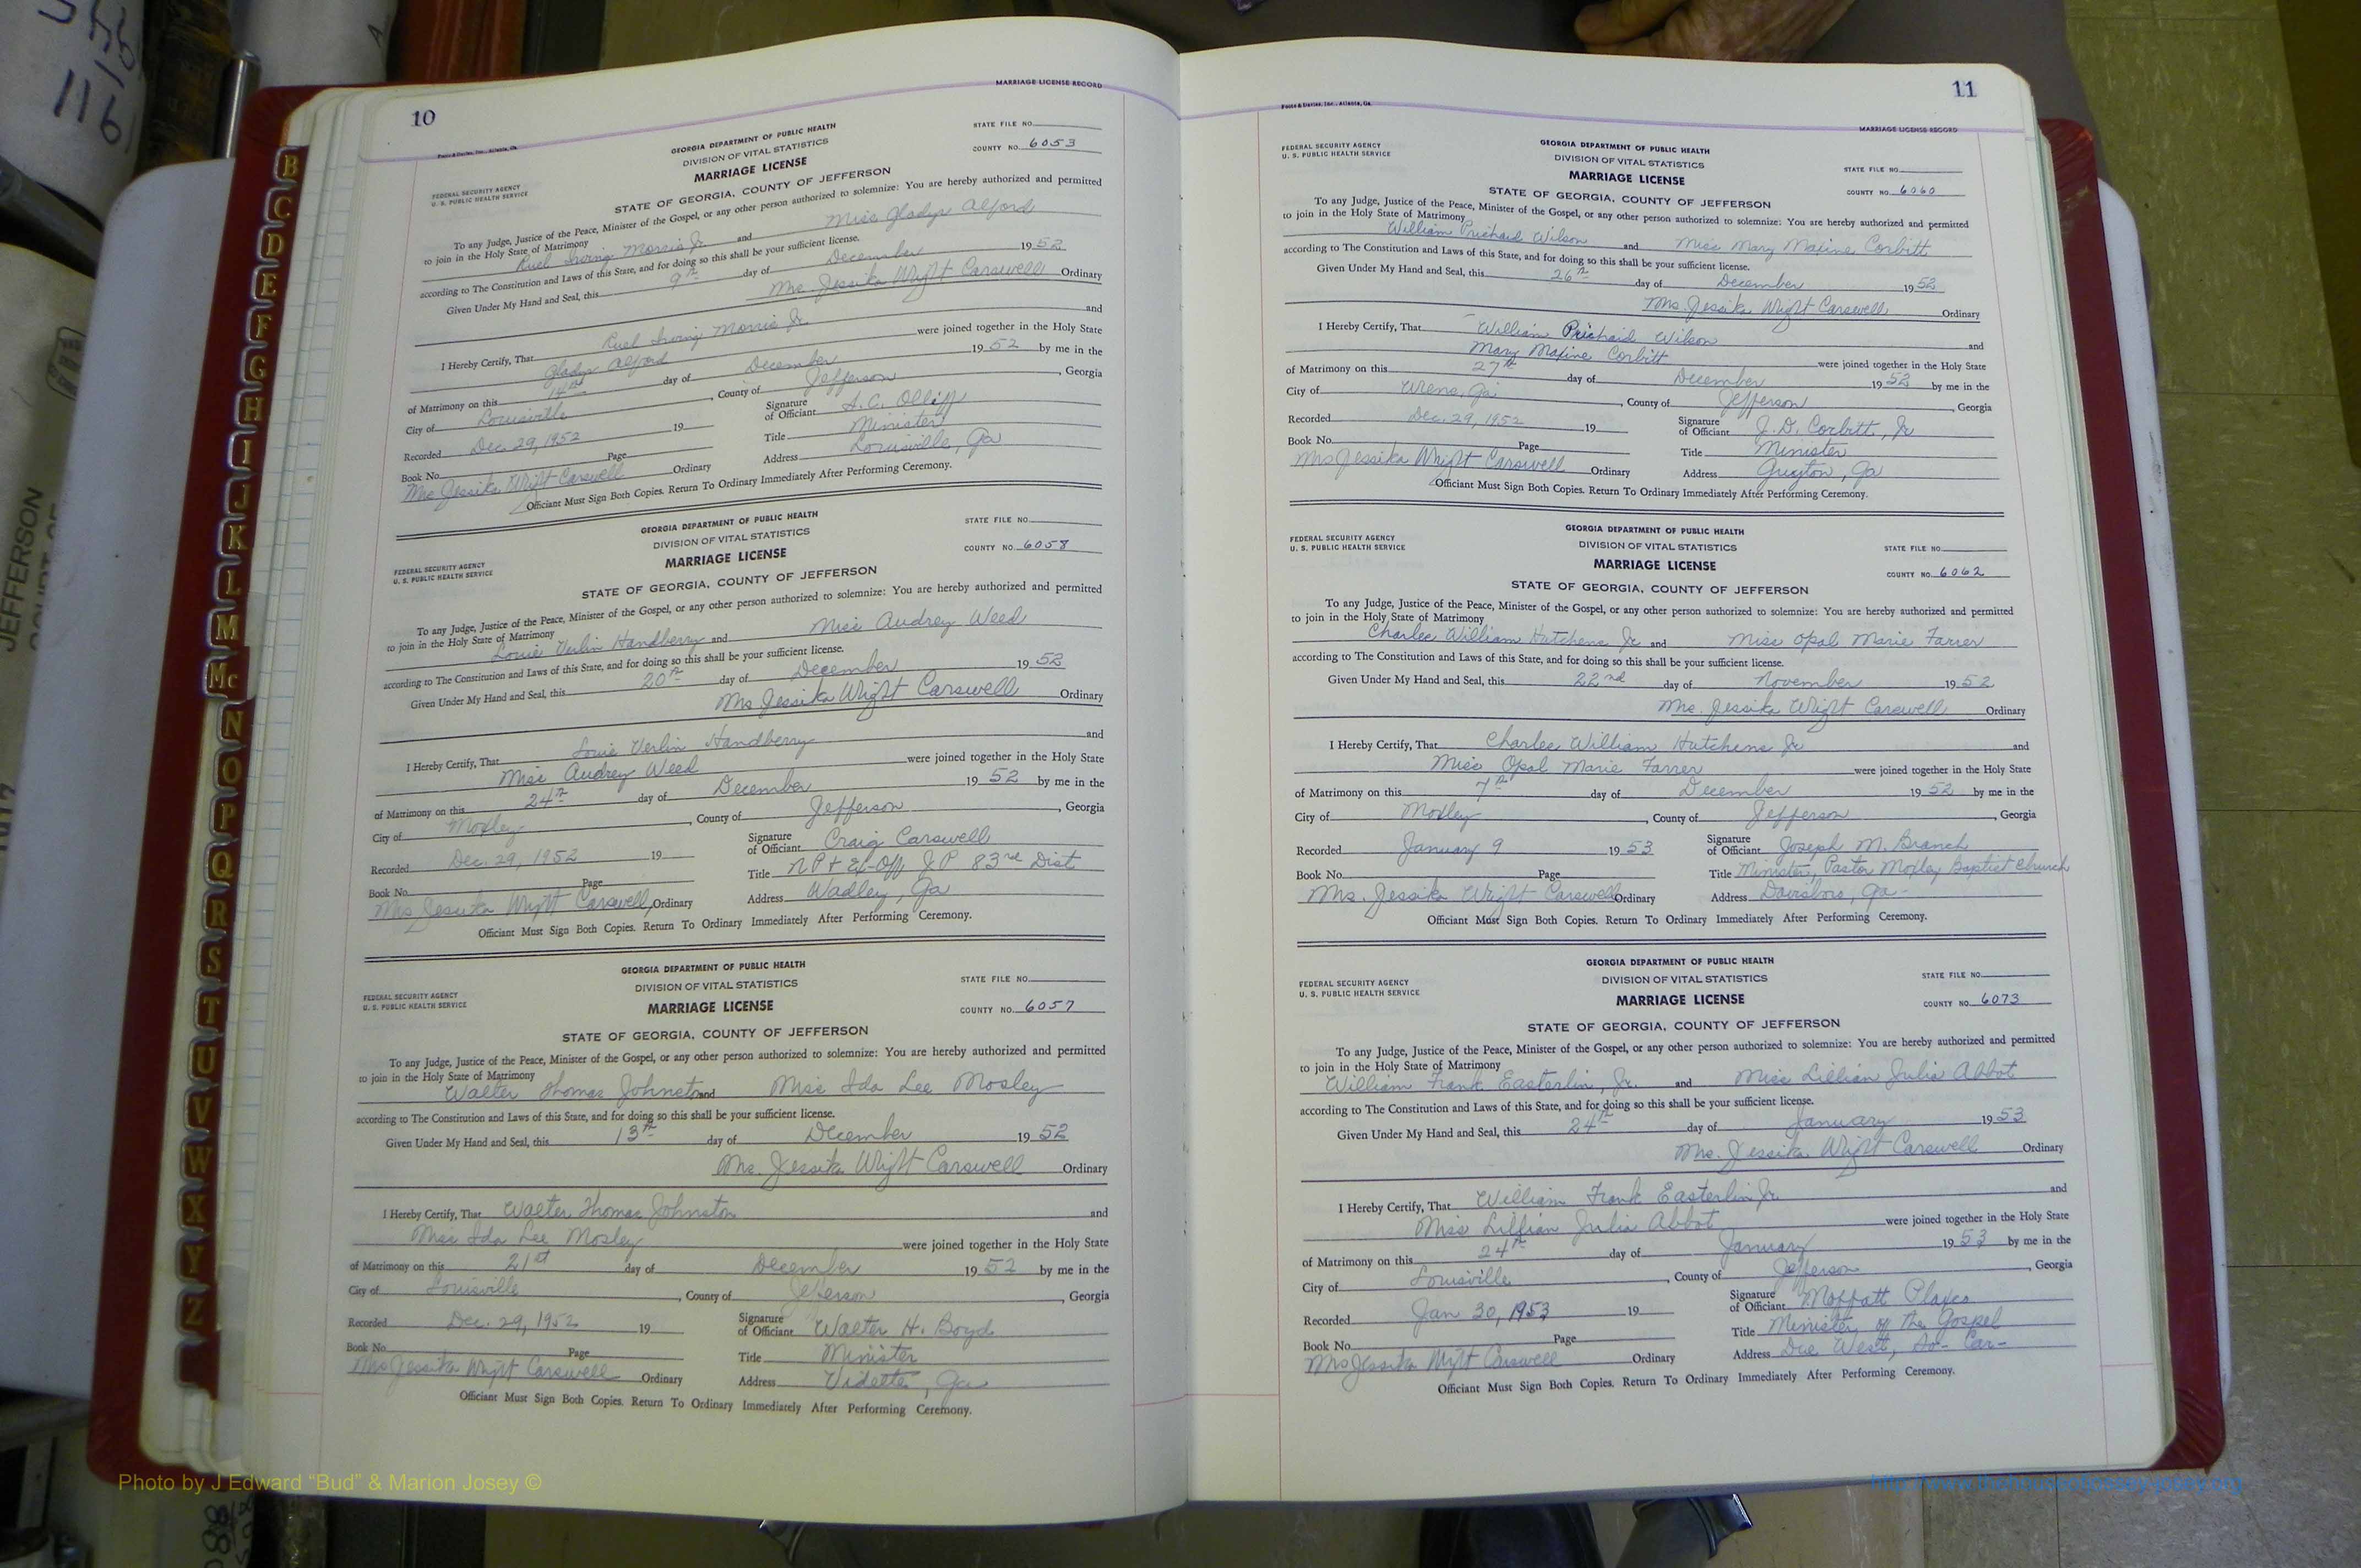 10
MARRIAGE LICENSE RECORD
GEORGIA DEPARTMENT OF PUBLIC HEALTH
DIVISION OF VITAL STATISTICS
MARRIAGE LICENSE
STATE FILE NO.
COUNTY NO. 6053
FEDERAL SECURITY AGENCY
U. S. PUBLIC HEALTH SERVICE
STATE OF GEORGIA, COUNTY OF JEFFERSON
To any Judge, Justice of the Peace, Minister of the Gospel, or any other person authorized to solemnize: You are hereby authorized and permitted
to join in the Holy State of Matrimony
Ruel Irving Morris Jr. and Miss Gladys Alford
according to The Constitution and Laws of this State, and for doing so this shall be your sufficient license.
Given Under My Hand and Seal, this 9th day of December 1952
Mrs. Jessika Wright Carswell Ordinary
I Hereby Certify, That Ruel Irving Morris Jr. and
Gladys Alford were joined together in the Holy State
of Matrimony on this 14th day of December 1952 by me in the
City of Louisville, County of Jefferson, Georgia
Recorded Dec. 29, 1952 19 Signature of Officiant A. C. Olliff
Book No. Page Title Minister
Mrs Jessika Wright Carswell Ordinary Address Louisville, Ga
Officiant Must Sign Both Copies. Return To Ordinary Immediately After Performing Ceremony.
GEORGIA DEPARTMENT OF PUBLIC HEALTH
DIVISION OF VITAL STATISTICS
MARRIAGE LICENSE
STATE FILE NO.
COUNTY NO. 6058
FEDERAL SECURITY AGENCY
U. S. PUBLIC HEALTH SERVICE
STATE OF GEORGIA, COUNTY OF JEFFERSON
To any Judge, Justice of the Peace, Minister of the Gospel, or any other person authorized to solemnize: You are hereby authorized and permitted
to join in the Holy State of Matrimony
Louie Verlin Handberry and Miss Audrey Weed
according to The Constitution and Laws of this State, and for doing so this shall be your sufficient license.
Given Under My Hand and Seal, this 20th day of December 1952
Mrs Jessika Wright Carswell Ordinary
I Hereby Certify, That Louie Verlin Handberry and
Miss Audrey Weed were joined together in the Holy State
of Matrimony on this 24th day of December 1952 by me in the
City of Moxley, County of Jefferson, Georgia
Recorded Dec. 29, 1952 19 Signature of Officiant Craig Carswell
Book No. Page Title N P + Ex-Off J P 83rd Dist
Mrs Jessika Wright Carswell, Ordinary Address Wadley, Ga
Officiant Must Sign Both Copies. Return To Ordinary Immediately After Performing Ceremony.
GEORGIA DEPARTMENT OF PUBLIC HEALTH
DIVISION OF VITAL STATISTICS
MARRIAGE LICENSE
STATE FILE NO.
COUNTY NO. 6057
FEDERAL SECURITY AGENCY
U. S. PUBLIC HEALTH SERVICE
STATE OF GEORGIA, COUNTY OF JEFFERSON
To any Judge, Justice of the Peace, Minister of the Gospel, or any other person authorized to solemnize: You are hereby authorized and permitted
to join in the Holy State of Matrimony
Walter Thomas Johnston and Miss Ida Lee Mosley
according to The Constitution and Laws of this State, and for doing so this shall be your sufficient license.
Given Under My Hand and Seal, this 13th day of December 1952
Mrs. Jessika Wright Carswell Ordinary
I Hereby Certify, That Walter Thomas Johnston and
Miss Ida Lee Mosley were joined together in the Holy State
of Matrimony on this 21st day of December 1952 by me in the
City of Louisville, County of Jefferson, Georgia
Recorded Dec. 29, 1952 19 Signature of Officiant Walter H. Boyd
Book No. Page Title Minister
Mrs Jessika Wright Carswell Ordinary Address Vidette, Ga
Officiant Must Sign Both Copies. Return To Ordinary Immediately After Performing Ceremony.
11
MARRIAGE LICENSE RECORD
GEORGIA DEPARTMENT OF PUBLIC HEALTH
DIVISION OF VITAL STATISTICS
MARRIAGE LICENSE
STATE FILE NO.
COUNTY NO. 6060
FEDERAL SECURITY AGENCY
U. S. PUBLIC HEALTH SERVICE
STATE OF GEORGIA, COUNTY OF JEFFERSON
To any Judge, Justice of the Peace, Minister of the Gospel, or any other person authorized to solemnize: You are hereby authorized and permitted
to join in the Holy State of Matrimony
William Prichard Wilson and Miss Mary Maxine Corbitt
according to The Constitution and Laws of this State, and for doing so this shall be your sufficient license.
Given Under My Hand and Seal, this 26th day of December 1952
Mrs Jessika Wright Carswell Ordinary
I Hereby Certify, That William Prichard Wilson and
Mary Maxine Corbitt were joined together in the Holy State
of Matrimony on this 27th day of December 1952 by me in the
City of Wrens, Ga, County of Jefferson, Georgia
Recorded Dec. 29, 1952 19 Signature of Officiant J. D. Corbitt, Jr
Book No. Page Title Minister
Mrs Jessika Wright Carswell Ordinary Address Guyton, Ga
Officiant Must Sign Both Copies. Return To Ordinary Immediately After Performing Ceremony.
GEORGIA DEPARTMENT OF PUBLIC HEALTH
DIVISION OF VITAL STATISTICS
MARRIAGE LICENSE
STATE FILE NO.
COUNTY NO. 6062
FEDERAL SECURITY AGENCY
U. S. PUBLIC HEALTH SERVICE
STATE OF GEORGIA, COUNTY OF JEFFERSON
To any Judge, Justice of the Peace, Minister of the Gospel, or any other person authorized to solemnize: You are hereby authorized and permitted
to join in the Holy State of Matrimony
Charles William Hutchens Jr and Miss Opal Marie Farrer
according to The Constitution and Laws of this State, and for doing so this shall be your sufficient license.
Given Under My Hand and Seal, this 22nd day of November 1952
Mrs. Jessika Wright Carswell Ordinary
I Hereby Certify, That Charles William Hutchens Jr and
Miss Opal Marie Farrer were joined together in the Holy State
of Matrimony on this 7th day of December 1952 by me in the
City of Moxley, County of Jefferson, Georgia
Recorded January 9 1953 Signature of Officiant Joseph M. Branch
Book No. Page Title Minister, Pastor Moxley Baptist Church
Mrs. Jessika Wright Carswell Ordinary Address Davisboro, Ga-
Officiant Must Sign Both Copies. Return To Ordinary Immediately After Performing Ceremony.
GEORGIA DEPARTMENT OF PUBLIC HEALTH
DIVISION OF VITAL STATISTICS
MARRIAGE LICENSE
STATE FILE NO.
COUNTY NO. 6073
FEDERAL SECURITY AGENCY
U. S. PUBLIC HEALTH SERVICE
STATE OF GEORGIA, COUNTY OF JEFFERSON
To any Judge, Justice of the Peace, Minister of the Gospel, or any other person authorized to solemnize: You are hereby authorized and permitted
to join in the Holy State of Matrimony
William Frank Easterlin, Jr. and Miss Lillian Julia Abbot
according to The Constitution and Laws of this State, and for doing so this shall be your sufficient license.
Given Under My Hand and Seal, this 24th day of January 1953
Mrs. Jessika Wright Carswell Ordinary
I Hereby Certify, That William Frank Easterlin Jr. and
Miss Lillian Julia Abbot were joined together in the Holy State
of Matrimony on this 24th day of January 1953 by me in the
City of Louisville, County of Jefferson, Georgia
Recorded Jan 30, 1953 19 Signature of Officiant Moffatt Plaxco
Book No. Page Title Minister of the Gospel
Mrs Jessika Wright Carswell Ordinary Address Due West, So- Car-
Officiant Must Sign Both Copies. Return To Ordinary Immediately After Performing Ceremony.
B
C
D
E
F
G
H
I
J
K
L
M
Mc
N
O
P
Q
R
S
T
U
V
W
X
Y
Z
116
JEFFERSON
Photo by J Edward “Bud” & Marion Josey ©